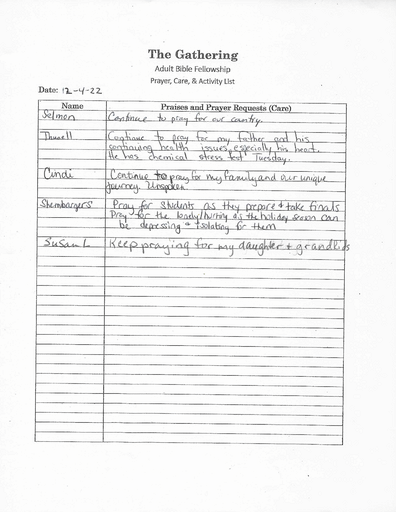 The Gathering
Adult Bible Fellowship
Prayer, Care, & Activity List
Date: 12-4-22
Name Praises and Prayer Requests (Care)
Selmon Continue to pray for our country.
Continue to pray for my father and his
continuing health issues, especially his heart.
He has chemical stress test Tuesday.
Cindi Continue to pray for my family and our unique
journey. Unspoken
Pray for students as they prepare & take finals
Pray for the lonely/hurting as the holiday season can
be depressing & isolating for them
Susan L Keep praying for my daughter + grandkids